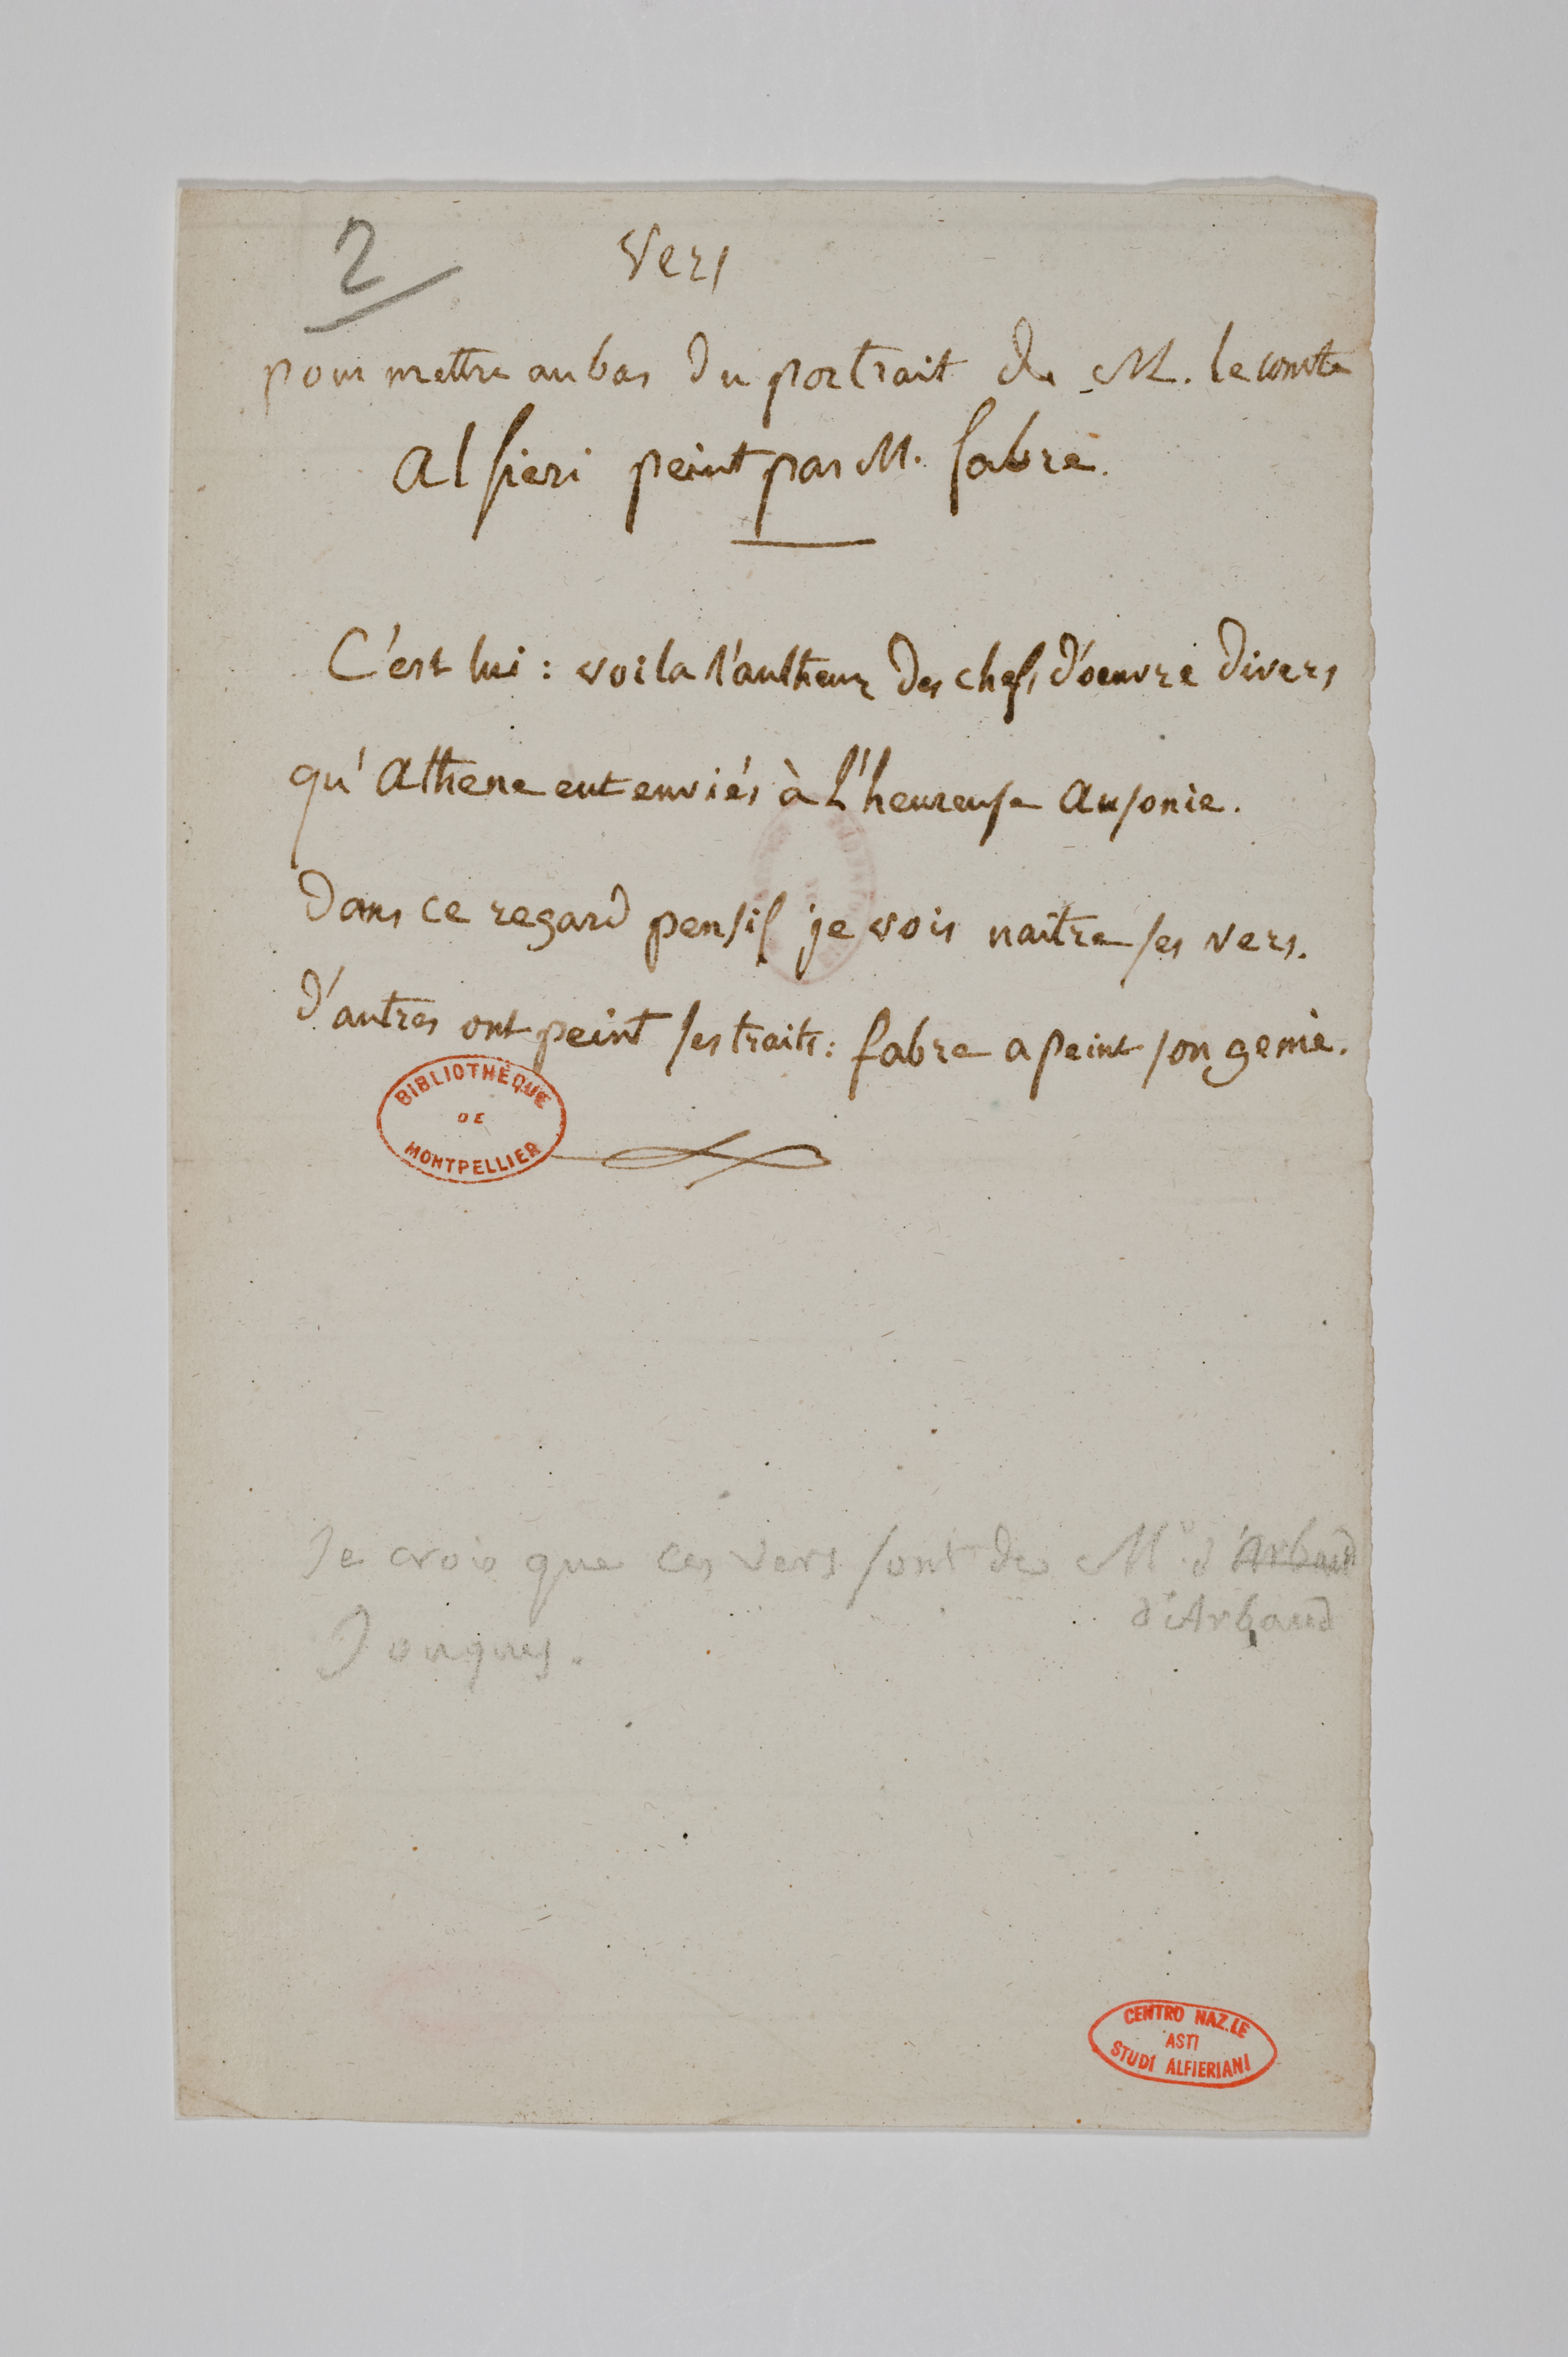 2
Vers
pour mettre au bas du portrait de M. le comte
alfieri peint par M. fabre.
C'est lui : voila l'autheur des chefs d'oeuvre divers
qu'athene eut enviés à l'heureuse ausonie.
Dans ce regard pensif je vois naitre ses vers.
d'autres ont peint ses traits : fabre a peint son genie.
BIBLIOTHÈQUE
DE
MONTPELLIER
Je crois que ces vers sont de Mr. d'Arbaud
d'Arbaud
Jouques.
CENTRO NAZ.LE
ASTI
STUDI ALFIERIANI